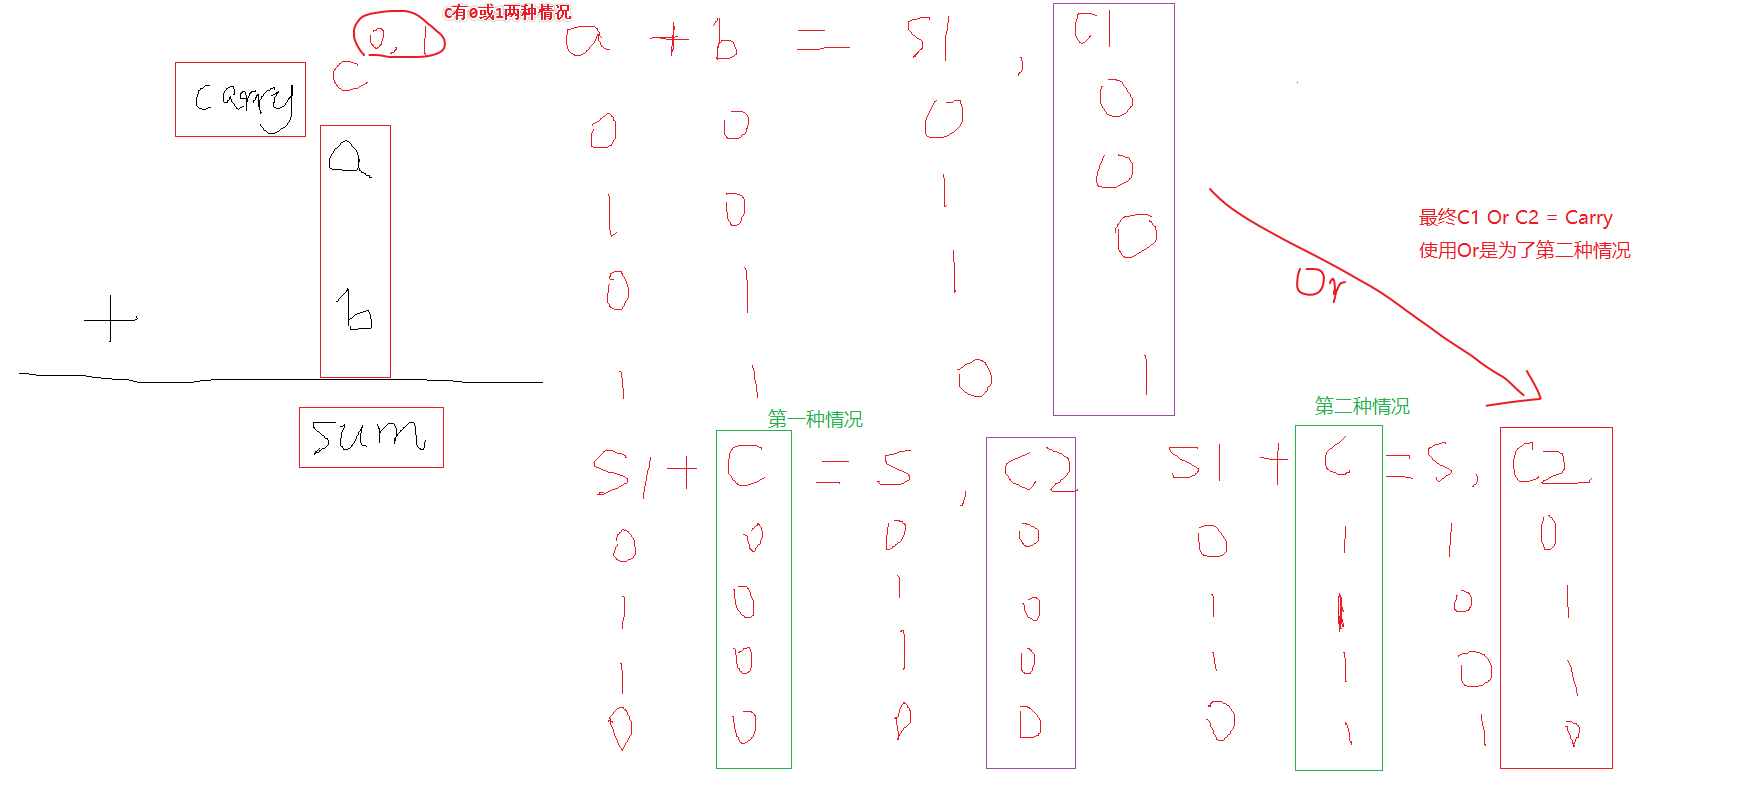 C有0或1两种情况
0, 1
c
carry
a
b
+
sum
a + b = S1 , C1
0 0 0 0
1 0 1 0
0 1 1 0
1 1 0 1
Or
最终C1 Or C2 = Carry
使用Or是为了第二种情况
第一种情况
S1 + C = S , C2
0 0 0 0
1 0 1 0
1 0 1 0
0 0 0 0
第二种情况
S1 + C = S , C2
0 1 1 0
1 1 0 1
1 1 0 1
0 1 1 0